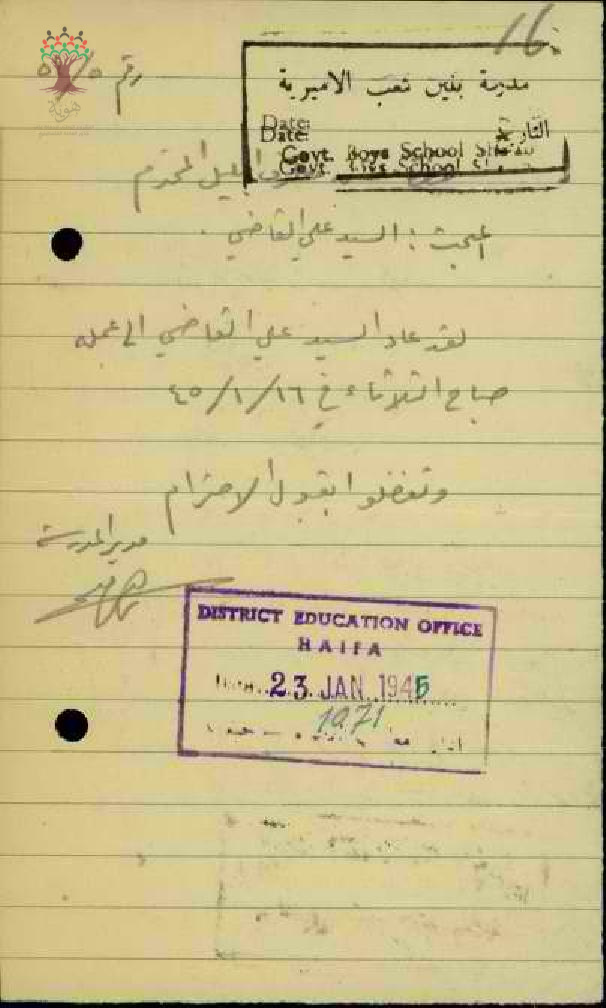 16
رقم ٥/٥
مدرسة بنين شعب الاميرية
Date:
Date:
التاريخ
Govt. Boys School Sha'ab
Govt. Boys School
الجليل المحترم
المبحث : السيد علي القاضي .
لقد عاد السيد علي القاضي الى عمله
صباح الثلاثاء في ١٦/١/٤٥
وتفضلوا بقبول الاحترام
مدير المدرسة
DISTRICT EDUCATION OFFICE
HAIFA
Date 23 JAN 1945
1971